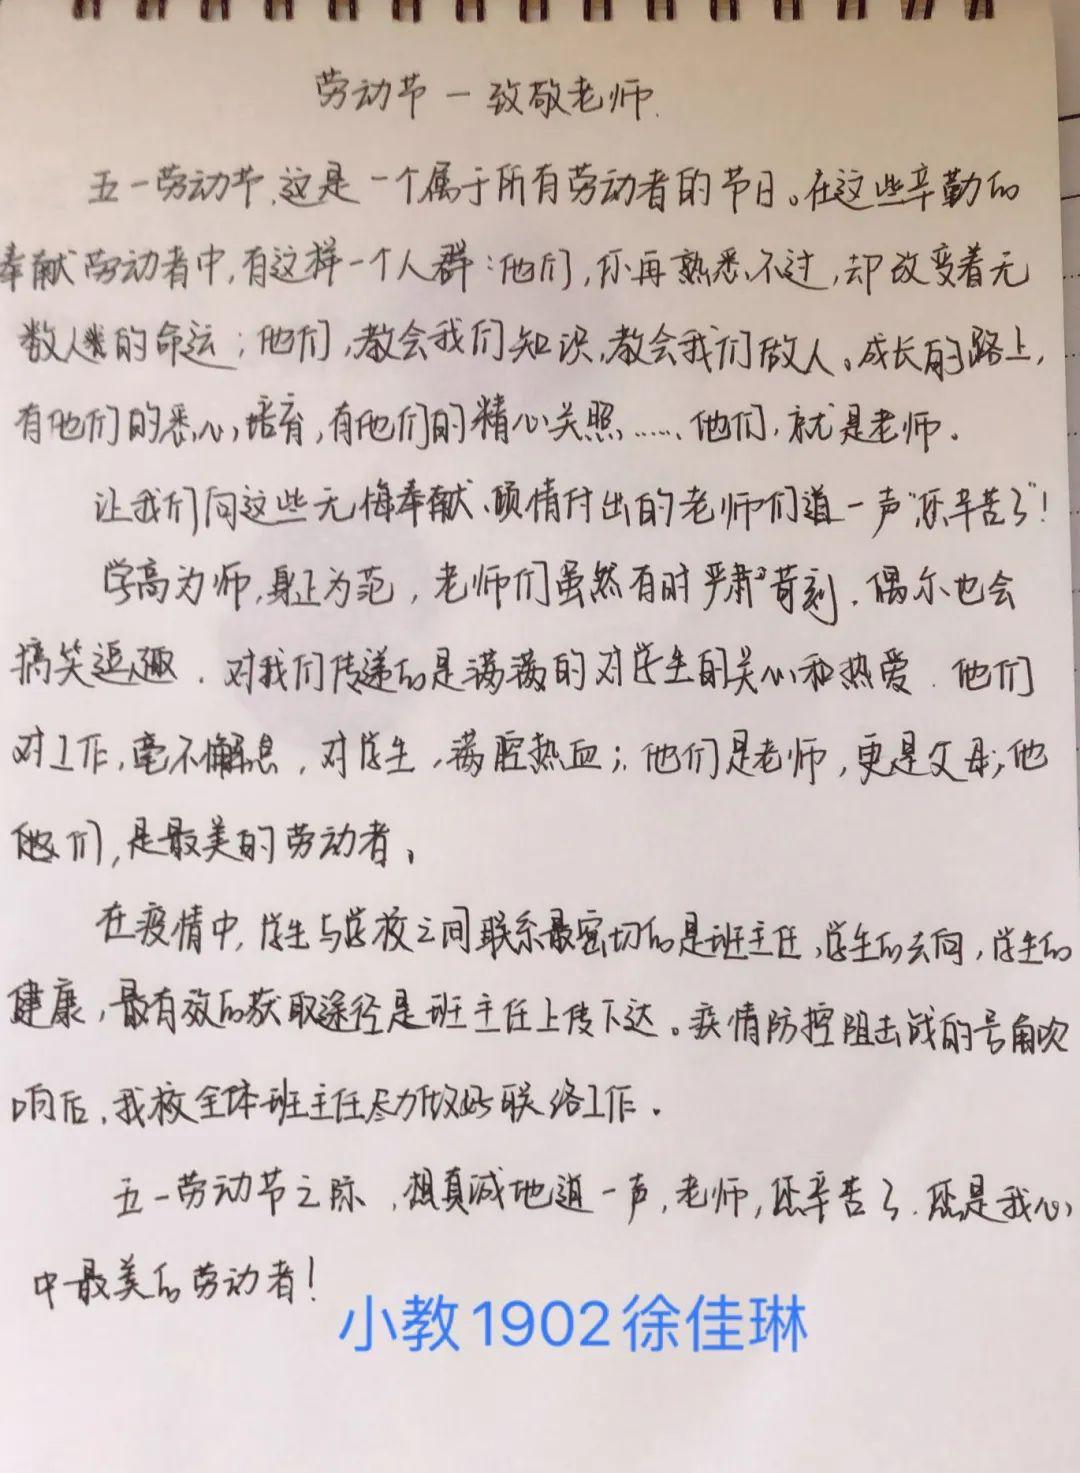 劳动节一致敬老师.
五一劳动节,这是一个属于所有劳动者的节日。在这些辛勤的
奉献劳动者中,有这样一个人群:他们,你再熟悉不过,却改变着无
数人类的命运;他们,教会我们知识,教会我们做人。成长的路上,
有他们的悉心培育,有他们的精心关照……他们,就是老师。
让我们向这些无悔奉献、倾情付出的老师们道一声"您辛苦了"!
学高为师,身正为范,老师们虽然有时严肃苛刻.偶尔也会
搞笑逗趣.对我们传递的是满满的对学生的关心和热爱.他们
对工作,毫不懈怠,对学生,满腔热血;他们是老师,更是父母;他
他们,是最美的劳动者。
在疫情中,学生与学校之间联系最密切的是班主任,学生的去向,学生的
健康,最有效的获取途径是班主任上传下达。疫情防控阻击战的号角吹
响后,我校全体班主任尽力做好联络工作.
五一劳动节之际,想真诚地道一声,老师,您辛苦了.您是我心
中最美的劳动者!
小教1902徐佳琳